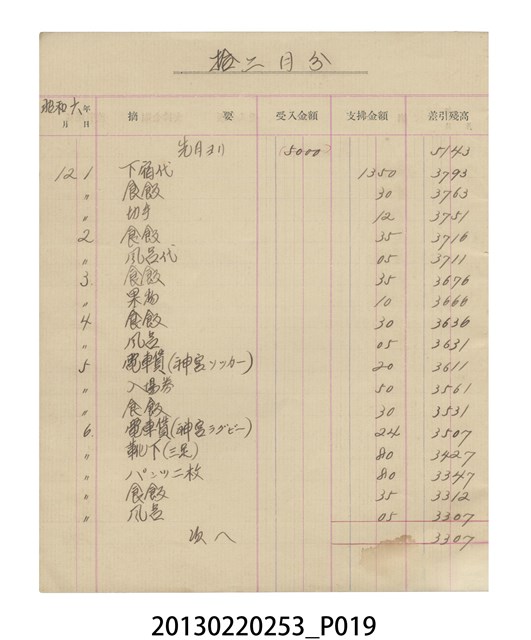 拾二月分
昭和六年
月 日 摘 要 受入金額 支拂金額 差引残高
先月ヨリ (5000) 5143
12 1 下宿代 1350 3793
〃 食飯 30 3763
〃 切手 12 3751
2 食飯 35 3716
〃 風呂代 05 3711
3 食飯 35 3676
〃 果物 10 3666
4 食飯 30 3636
〃 風呂 05 3631
5 電車賃(神宮ソッカー) 20 3611
〃 入場券 50 3561
〃 食飯 30 3531
6 電車賃(神宮ラグビー) 24 3507
〃 靴下(三足) 80 3427
〃 パンツ二枚 80 3347
〃 食飯 35 3312
〃 風呂 05 3307
次へ 3307
20130220253_P019